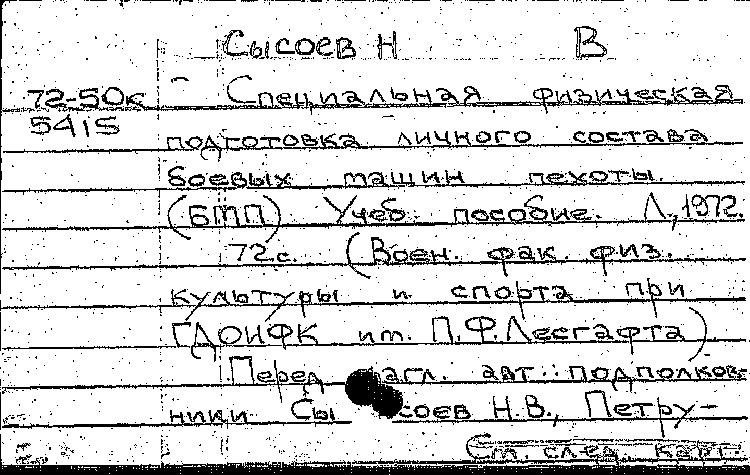 Сысоев Н В
72-50к Специальная физическая
5415 подготовка личного состава
боевых машин пехоты.
(БМП) Учеб. пособие. Л., 1972.
72с. (Воен. фак. физ.
культуры и спорта при
ГДОИФК им. П.Ф.Лесгафта)
Перед загл. авт.: подполков-
ники Сысоев Н.В., Петру-
См. след. карт.